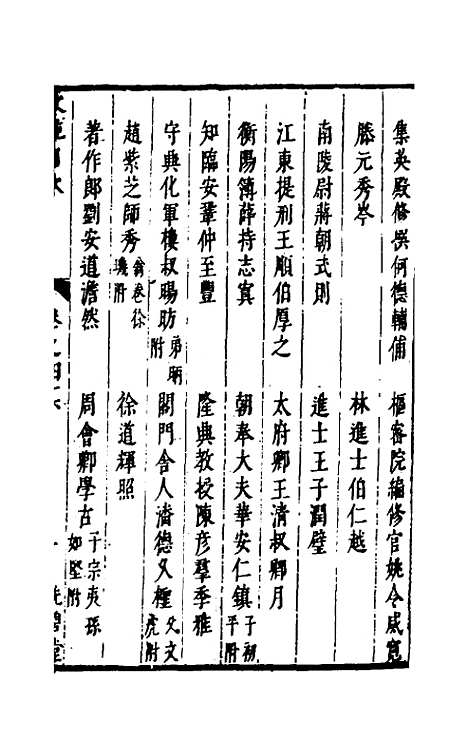 集英殿修撰何德輔俌
樞密院編修官姚令威寬
滕元秀岑
林進士伯仁越
南陵尉蔣朝式則
進士王子潤璧
江東提刑王順伯厚之
太府卿王清叔卿月
衡陽簿薛持志寘
朝奉大夫華安仁鎮子初平附
知臨安鞏仲至豐
隆興教授陳彥羣季雅
守興化軍樓叔暘昉弟昞附
閣門舍人潘德久檉父文虎附
趙紫芝師秀翁卷徐璣附
徐道輝照
著作郎劉安道澹然
周會卿學古子宗夷孫如堅附
卷之四